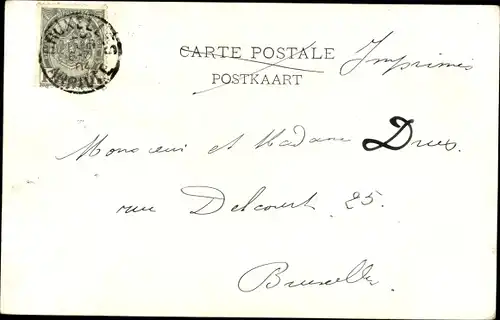 BRUXELLES
ARRIVÉE
CARTE POSTALE
POSTKAART
Imprimés
Monsieur et Madame
rue Delcourt 25.
Bruxelles